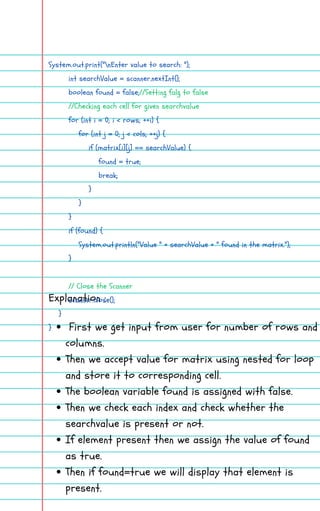 System.out.print("\nEnter value to search: ");
int searchValue = scanner.nextInt();
boolean found = false;//Setting falg to false
//Checking each cell for given searchvalue
for (int i = 0; i < rows; ++i) {
for (int j = 0; j < cols; ++j) {
if (matrix[i][j] == searchValue) {
found = true;
break;
}
}
}
if (found) {
System.out.println("Value " + searchValue + " found in the matrix.");
}
// Close the Scanner
Explanation:
}
}
• First we get input from user for number of rows and
columns.
• Then we accept value for matrix using nested for loop
and store it to corresponding cell.
• The boolean variable found is assigned with false.
• Then we check each index and check whether the
searchvalue is present or not.
• If element present then we assign the value of found
as true.
• Then if found=true we will display that element is
present.